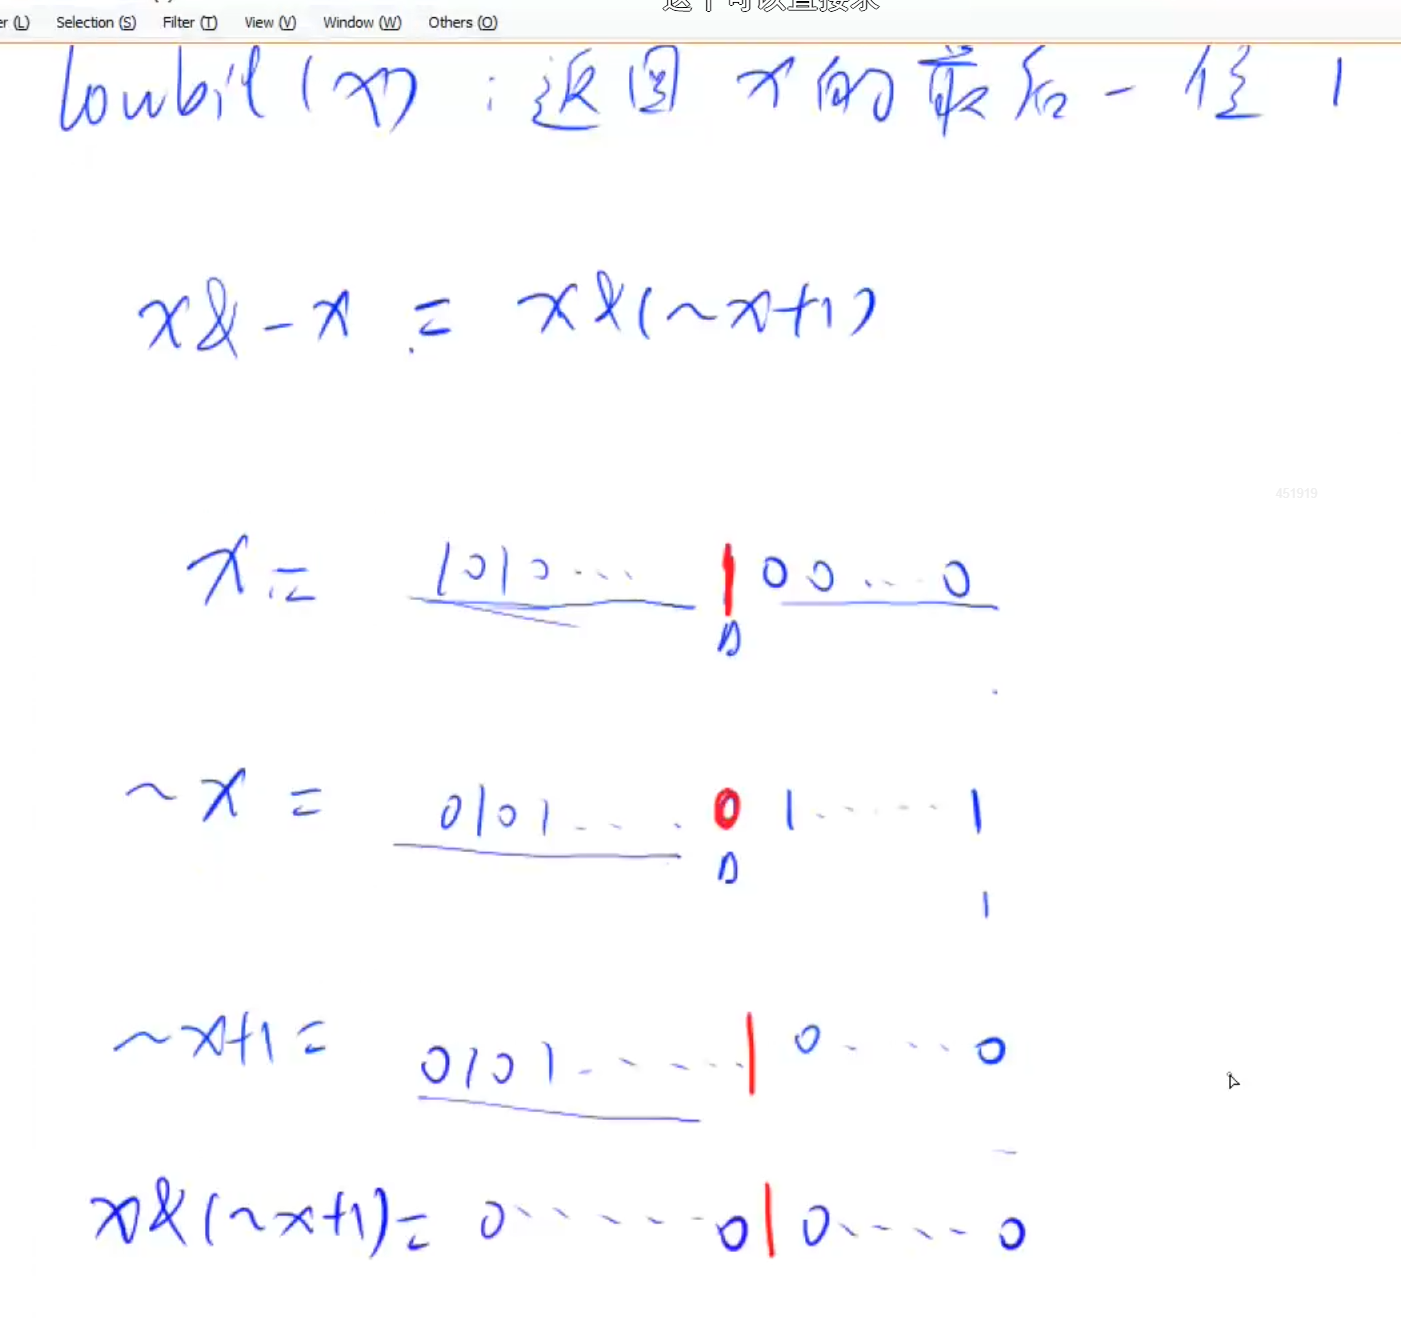 er (L) Selection (S) Filter (T) View (V) Window (W) Others (O)
这个可以直接求
lowbit(x) : 返回 x 的最后一位 1
x&-x = x&(~x+1)
451919
x = 1010... 1 00...0
~x = 0101.... 0 1.....1
1
~x+1 = 0101......1 0....0
x&(~x+1) = 0......0 1 0....0